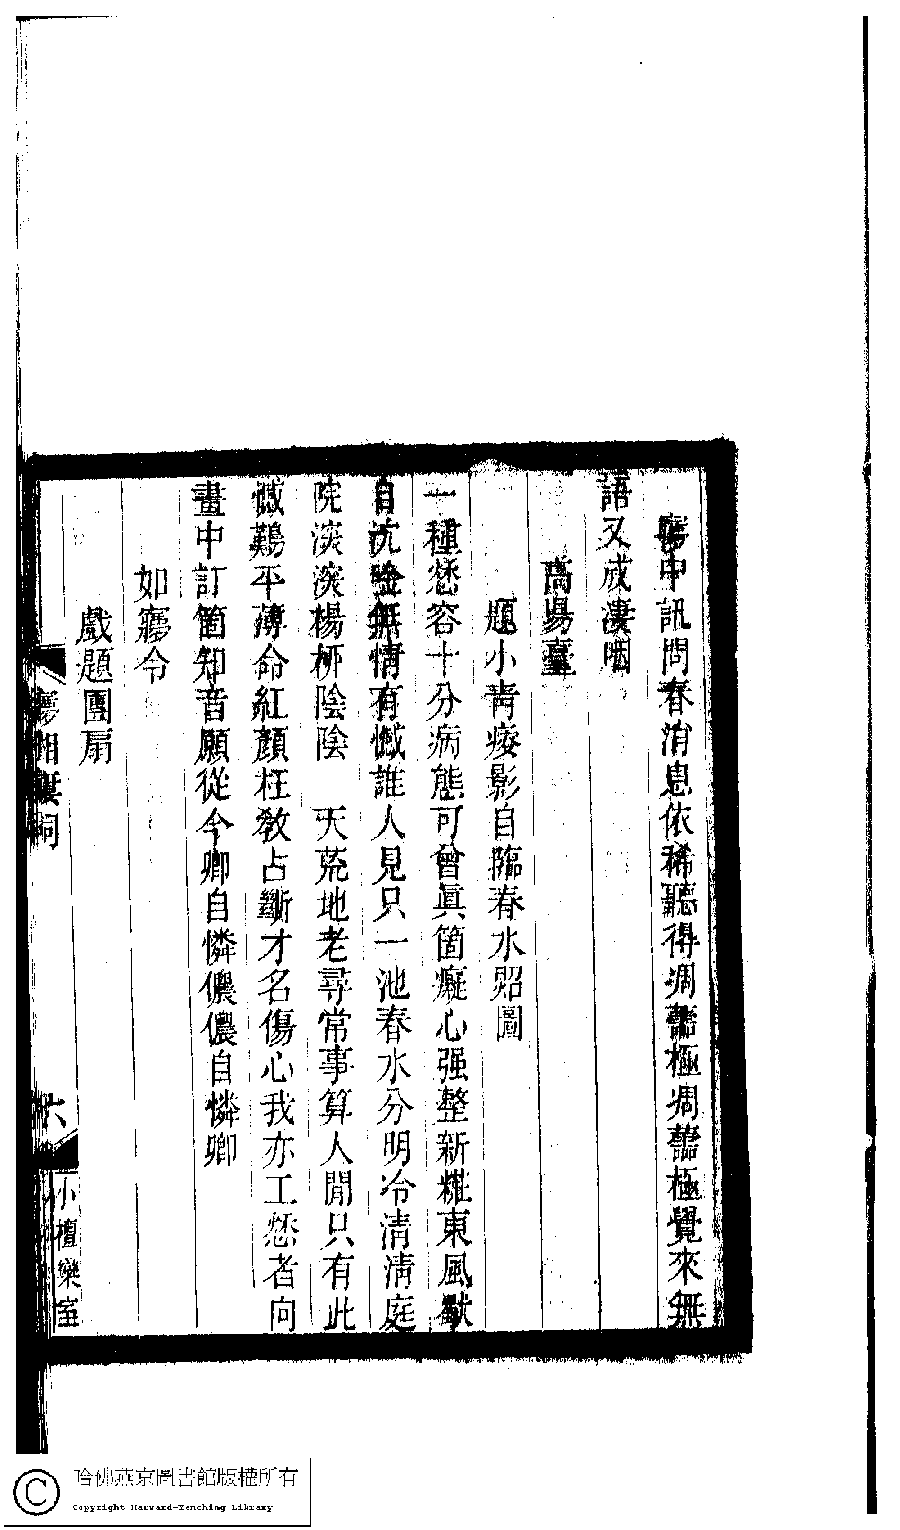 夢中訊問春消息依稀聽得凋蘦極凋蘦極覺來無
語又成淒咽
高陽臺
題小青瘦影自臨春水照圖
一種愁容十分病態可曾眞箇癡心强整新糚東風歡
自沈唫無情有憾誰人見只一池春水分明冷清清庭
院淡淡楊栁陰陰　天荒地老尋常事算人閒只有此
憾難平薄命紅顏枉敎占斷才名傷心我亦工愁者向
畫中訂箇知音願從今卿自憐儂儂自憐卿
如夢令
戲題團扇
夢湘樓詞
六
小檀欒室
哈佛燕京圖書館版權所有
Copyright Harvard-Yenching Library